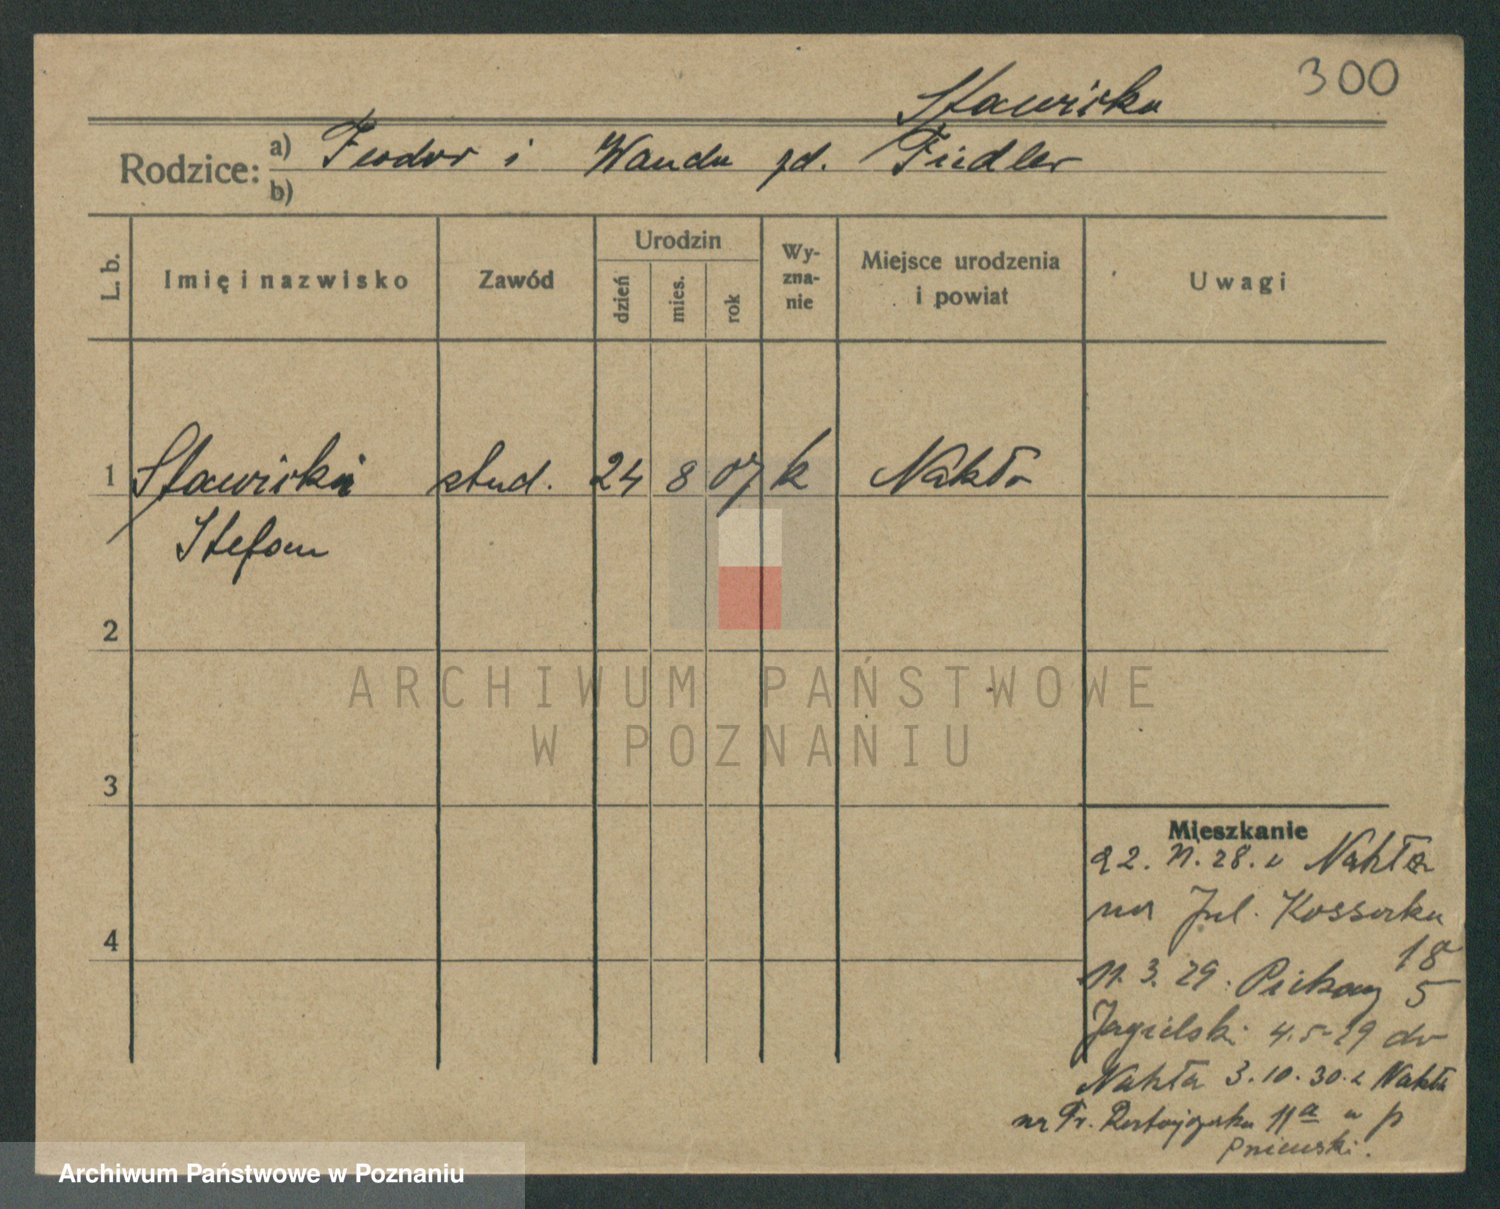 300
Stawiska
Rodzice: a) Teodor i Wanda zd. Fiedler
b)
L. b.
Imię i nazwisko
Zawód
Urodzin
dzień
mies.
rok
Wy-
zna-
nie
Miejsce urodzenia
i powiat
Uwagi
1 Stawiski stud. 24 8 07 k Nakło
Stefan
2
ARCHIWUM PAŃSTWOWE
W POZNANIU
3
Mieszkanie
22. 11. 28. z Nakła
na Jul. Kossaka
18
4
11. 3. 29. 5
Jagielski 4.5-29 do
Nakła 3.10.30. z Nakła
na Fr. Ratajczaka 11a u p
Pniewski.
Archiwum Państwowe w Poznaniu